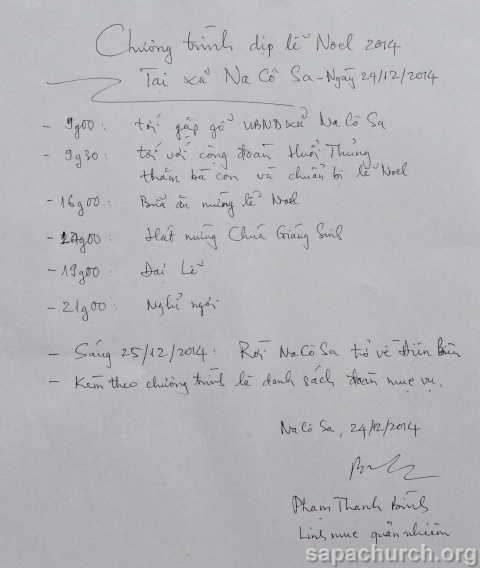 Chương trình dịp lễ Noel 2014
Tại xã Na Cô Sa - Ngày 24/12/2014
- 9g00: tới gặp gỡ UBND xã Na Cô Sa
- 9g30: tới với cộng đoàn Huổi Thủng
thăm bà con và chuẩn bị lễ Noel
- 16g00: Bữa ăn mừng lễ Noel
g00: Hát mừng Chúa Giáng Sinh
- 19g00: Đại Lễ
- 21g00: Nghỉ ngơi
- Sáng 25/12/2014: Rời Na Cô Sa trở về Điện Biên
- Kèm theo chương trình là danh sách đoàn mục vụ.
Na Cô Sa, 24/12/2014
Phạm Thanh Bình
Linh mục quản nhiệm
sapachurch.org